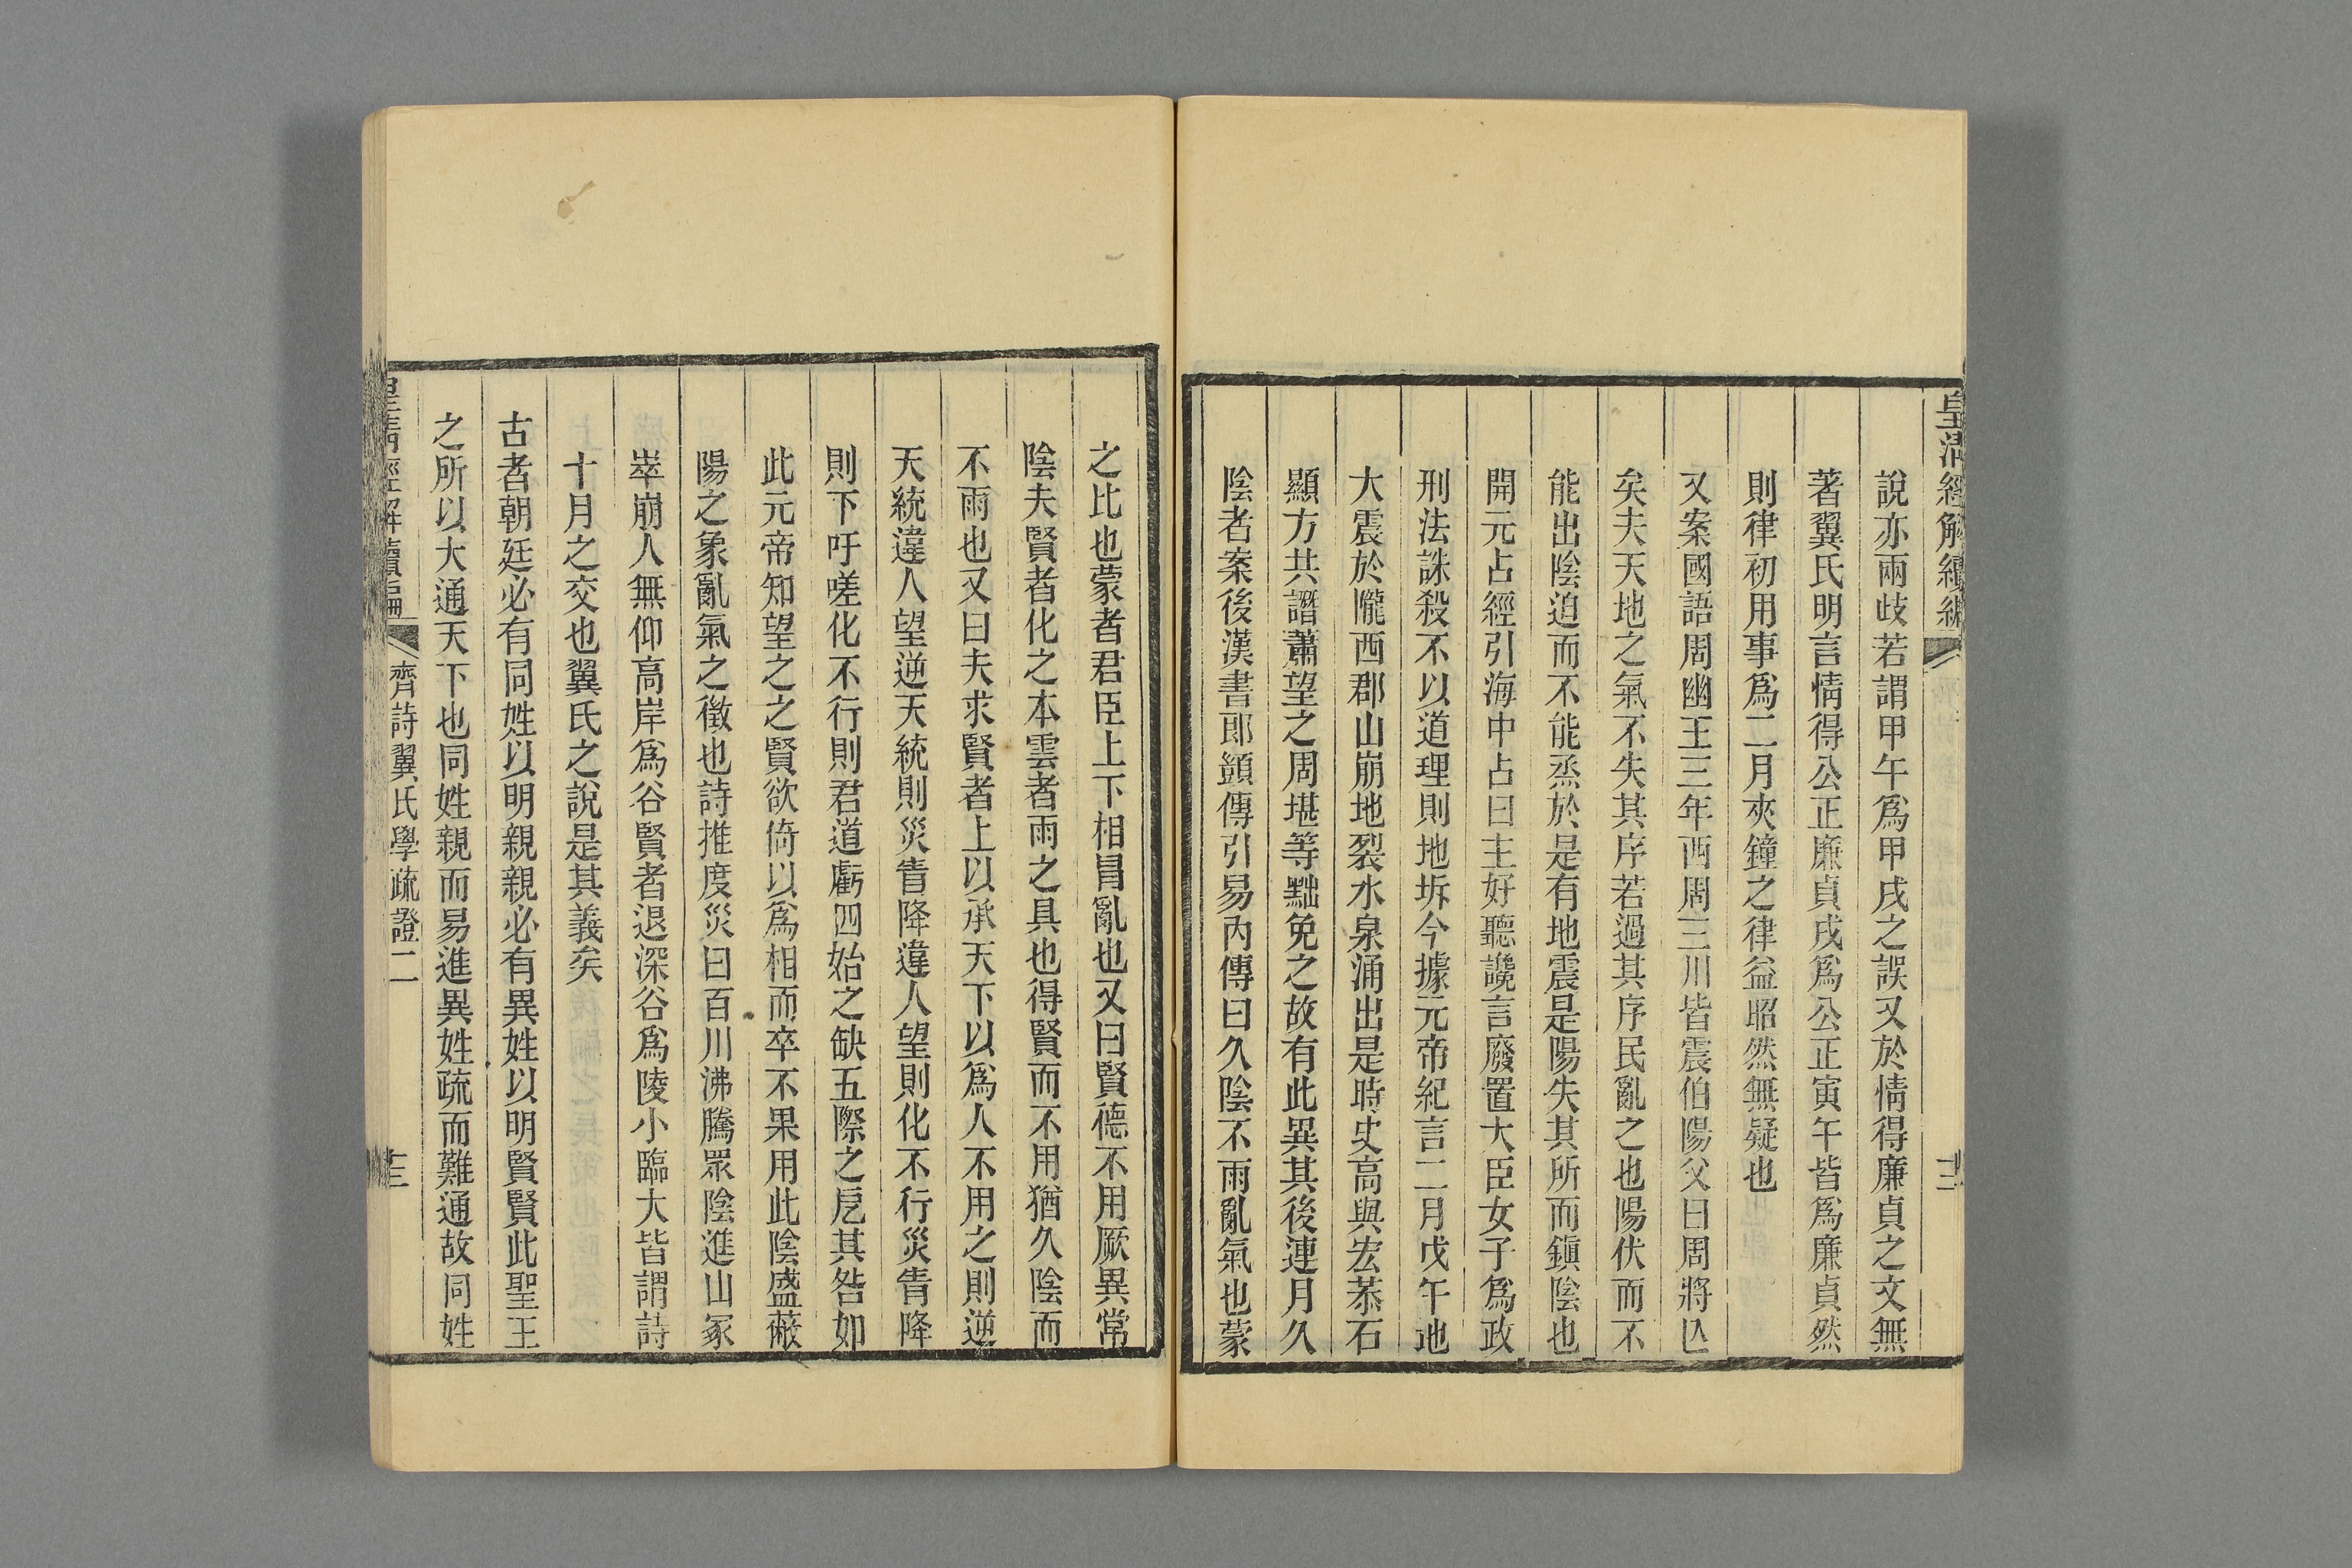 皇清經解續編
說亦兩歧若謂甲午爲甲戌之誤又於情得廉貞之文無
著翼氏明言情得公正廉貞戌爲公正寅午皆爲廉貞然
則律初用事爲二月夾鐘之律益昭然無疑也
又案國語周幽王三年西周三川皆震伯陽父曰周將亾
矣夫天地之氣不失其序若過其序民亂之也陽伏而不
能出陰迫而不能烝於是有地震是陽失其所而鎭陰也
開元占經引海中占曰主好聽讒言廢置大臣女子爲政
刑法誅殺不以道理則地坼今據元帝紀言二月戊午地
大震於隴西郡山崩地裂水泉涌出是時史高與宏恭石
顯方共譖蕭望之周堪等黜免之故有此異其後連月久
陰者案後漢書郎顗傳引易內傳曰久陰不雨亂氣也蒙
之比也蒙者君臣上下相冒亂也又曰賢德不用厥異常
陰夫賢者化之本雲者雨之具也得賢而不用猶久陰而
不雨也又曰夫求賢者上以承天下以爲人不用之則逆
天統違人望逆天統則災眚降違人望則化不行災眚降
則下吁嗟化不行則君道虧四始之缺五際之戹其咎如
此元帝知望之之賢欲倚以爲相而卒不果用此陰盛蔽
陽之象亂氣之徵也詩推度災曰百川沸騰眾陰進山冢
崒崩人無仰高岸爲谷賢者退深谷爲陵小臨大皆謂詩
十月之交也翼氏之說是其義矣
古者朝廷必有同姓以明親親必有異姓以明賢賢此聖王
之所以大通天下也同姓親而易進異姓疏而難通故同姓
皇清經解續編
齊詩翼氏學疏證二
十三